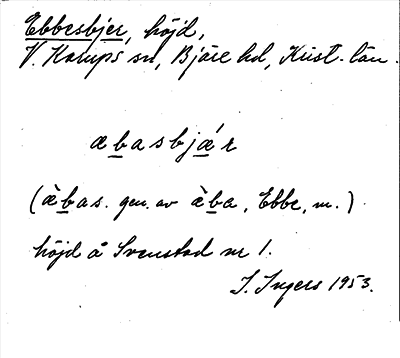 Ebbesbjer, höjd,
V. Karups sn, Bjäre hd, Krist. län.
æbasbjǽr
(æ̀bas. gen. av æ̀ba, Ebbe, m.)
höjd å Svenstad nr 1.
I. Ingers 1953.